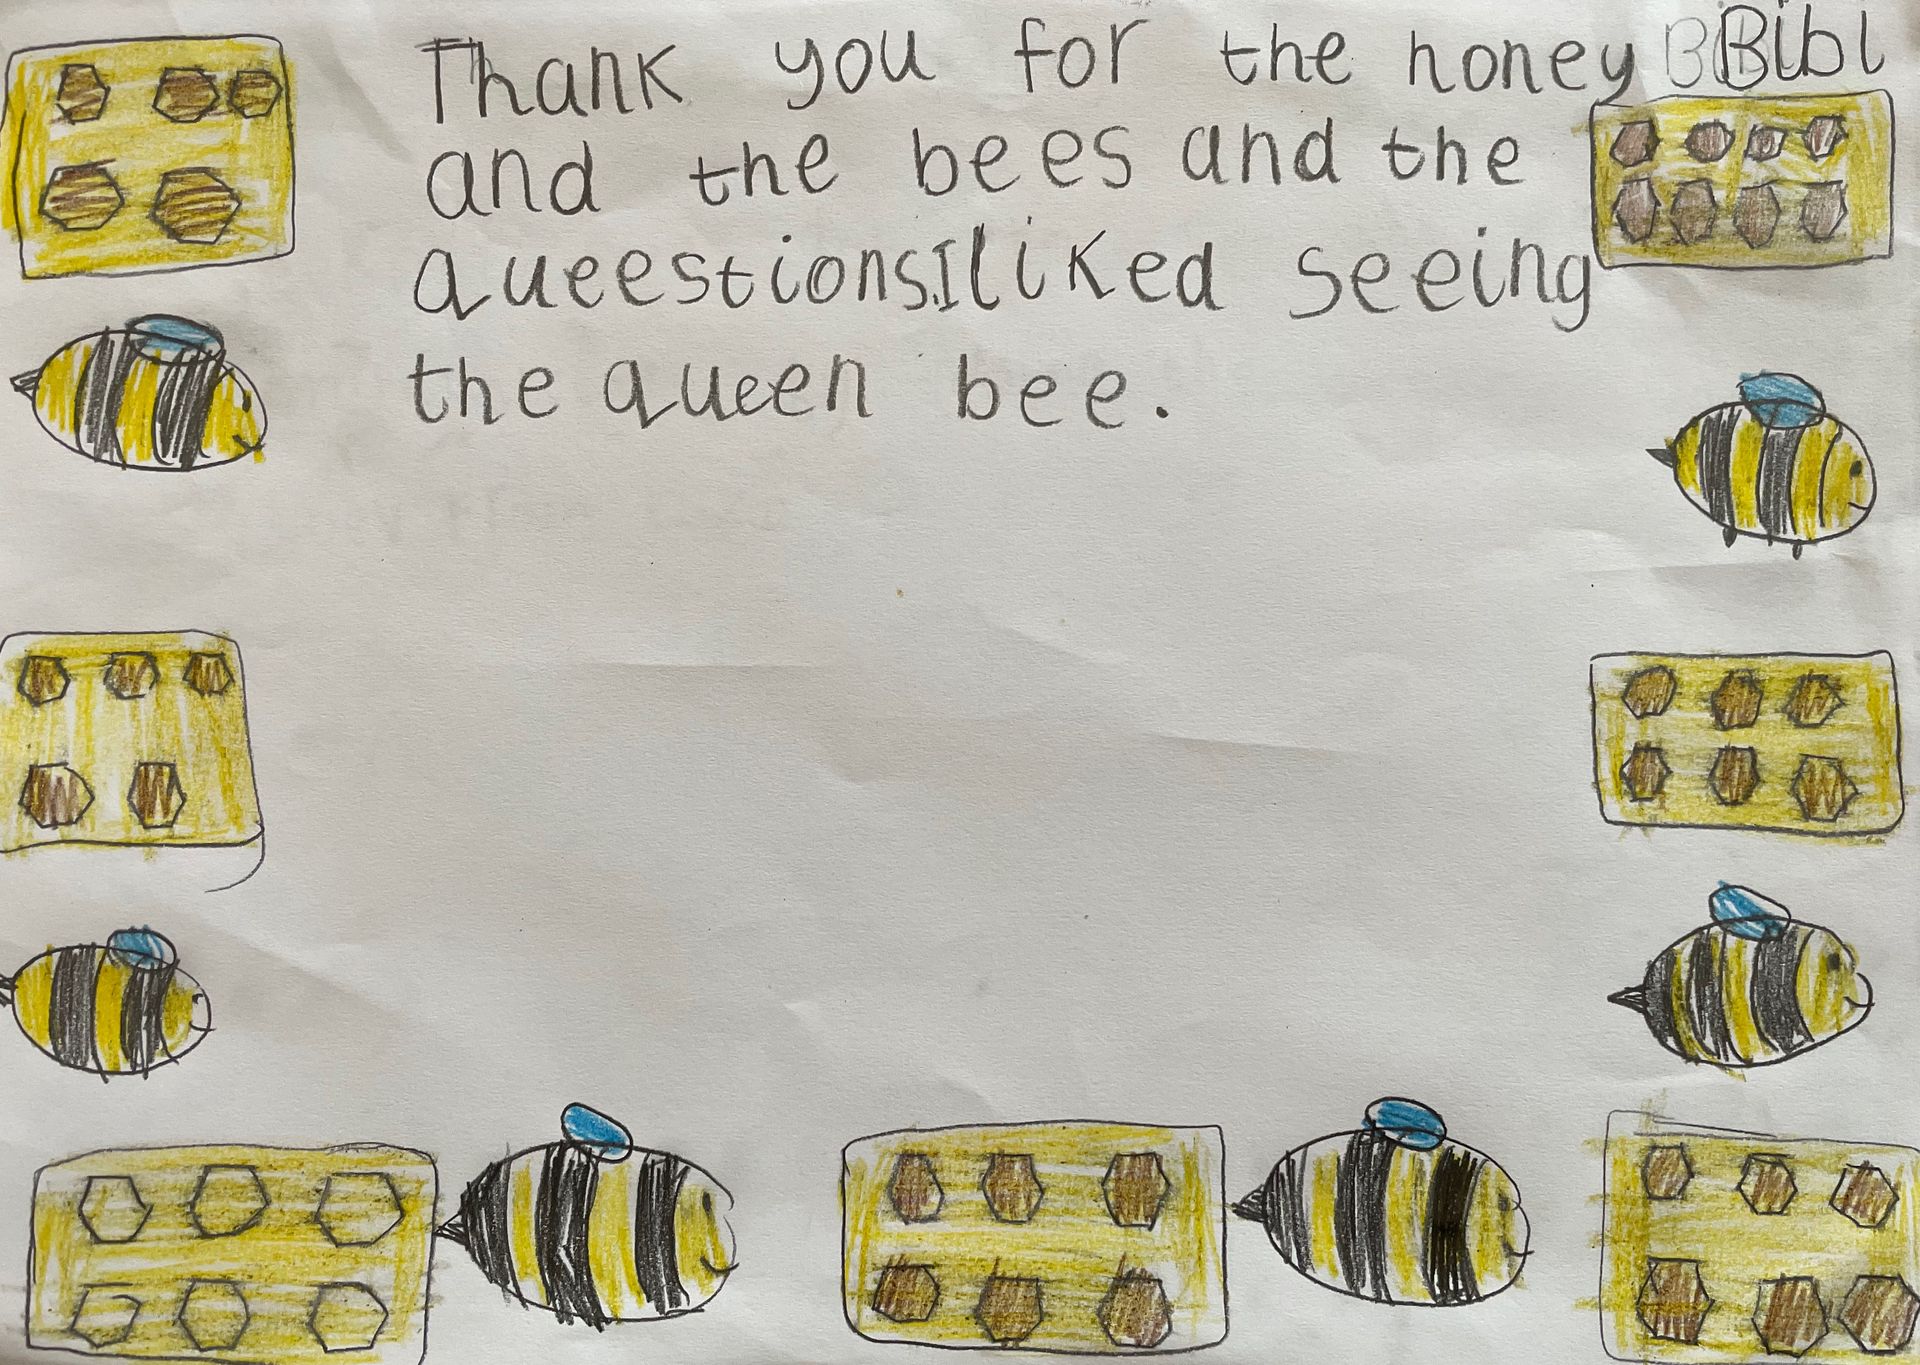 Thank you for the honey Bibi
and the bees and the
queestions.I liked seeing
the queen bee.